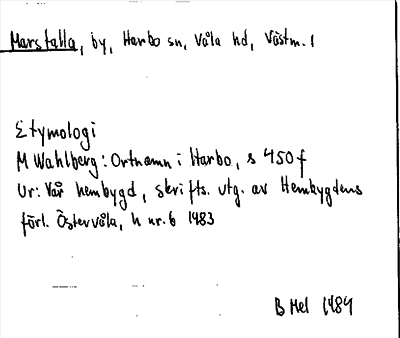 Marstalla, by, Harbo sn, Våla hd, Västm. l
Etymologi
M Wahlberg: Ortnamn i Harbo, s 450 f
Ur: Vår hembygd, skrifts. utg. av Hembygdens
förl. Östervåla, h nr. 6 1983
B Mel 1984